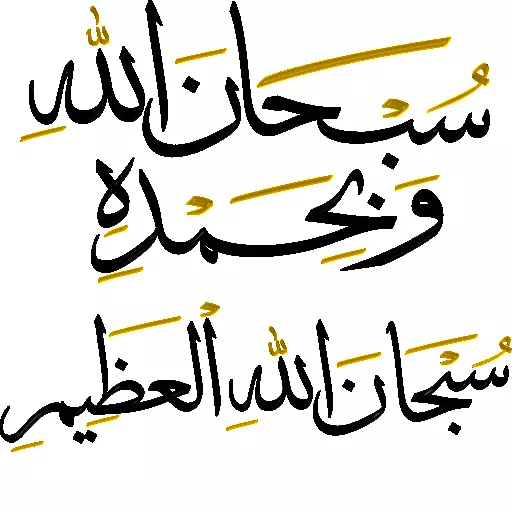 سُبْحَانَ اللهِ
وَبِحَمْدِهِ
سُبْحَانَ اللهِ ٱلْعَظِيمِ